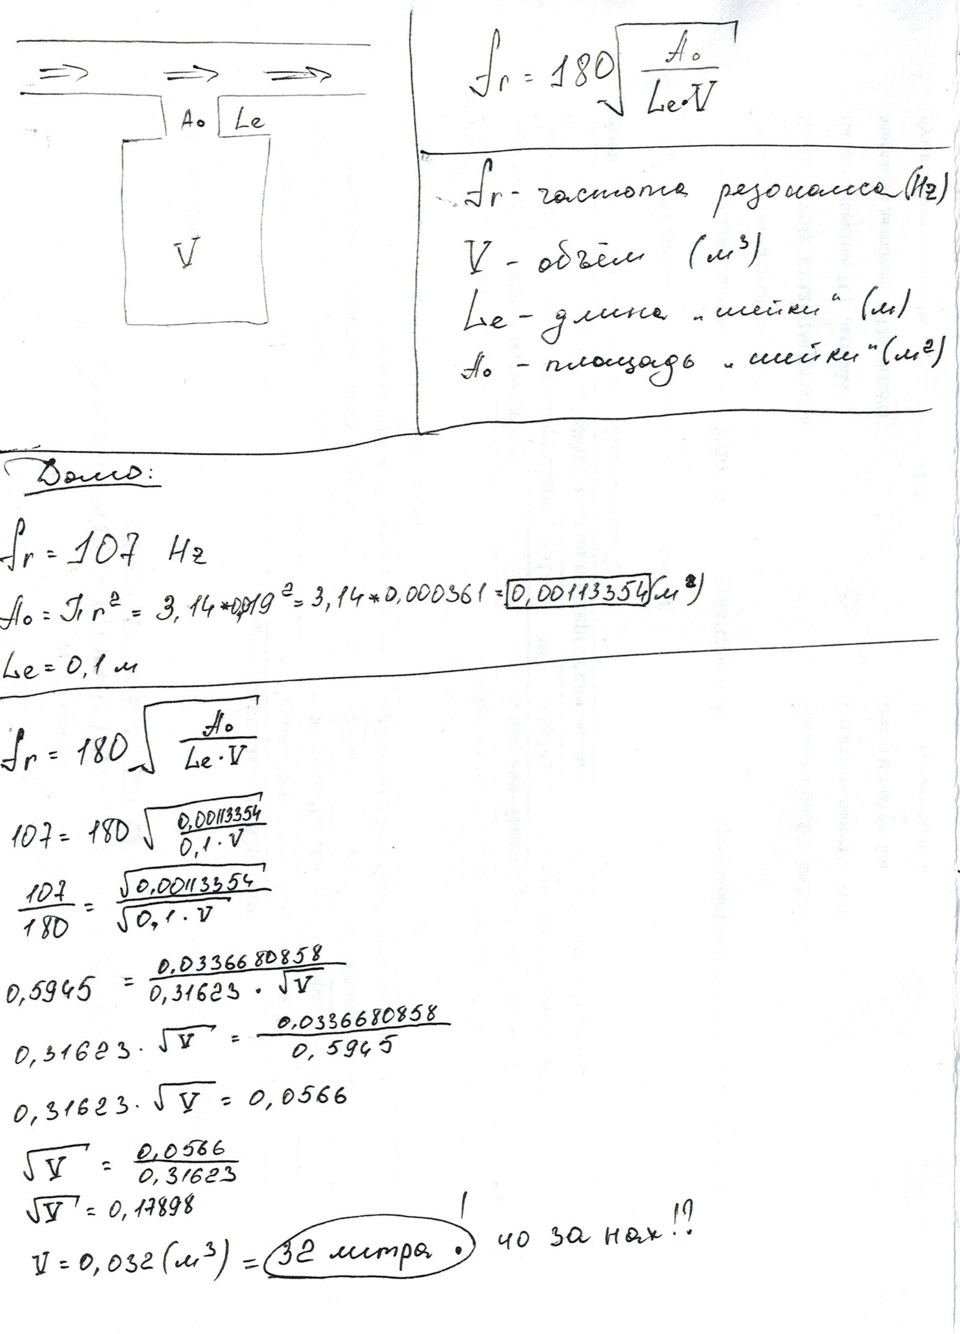 ⇒ ⇒ ⇒
A₀ Le
V
fr = 180√(A₀/(Le·V))
fr - частота резонанса (Hz)
V - объём (м³)
Le - длина „шейки“ (м)
A₀ - площадь „шейки“ (м²)
Дано:
fr = 107 Hz
A₀ = Пr² = 3,14*0,019² = 3,14*0,000361 = 0,00113354 (м²)
Le = 0,1 м
fr = 180√(A₀/(Le·V))
107 = 180√(0,00113354/(0,1·V))
107/180 = √0,00113354/√(0,1·V)
0,5945 = 0.0336680858/(0,31623·√V)
0,31623·√V = 0.0336680858/0,5945
0,31623·√V = 0,0566
√V = 0,0566/0,31623
√V = 0,17898
V = 0,032 (м³) = 32 литра. ! чо за нах!?